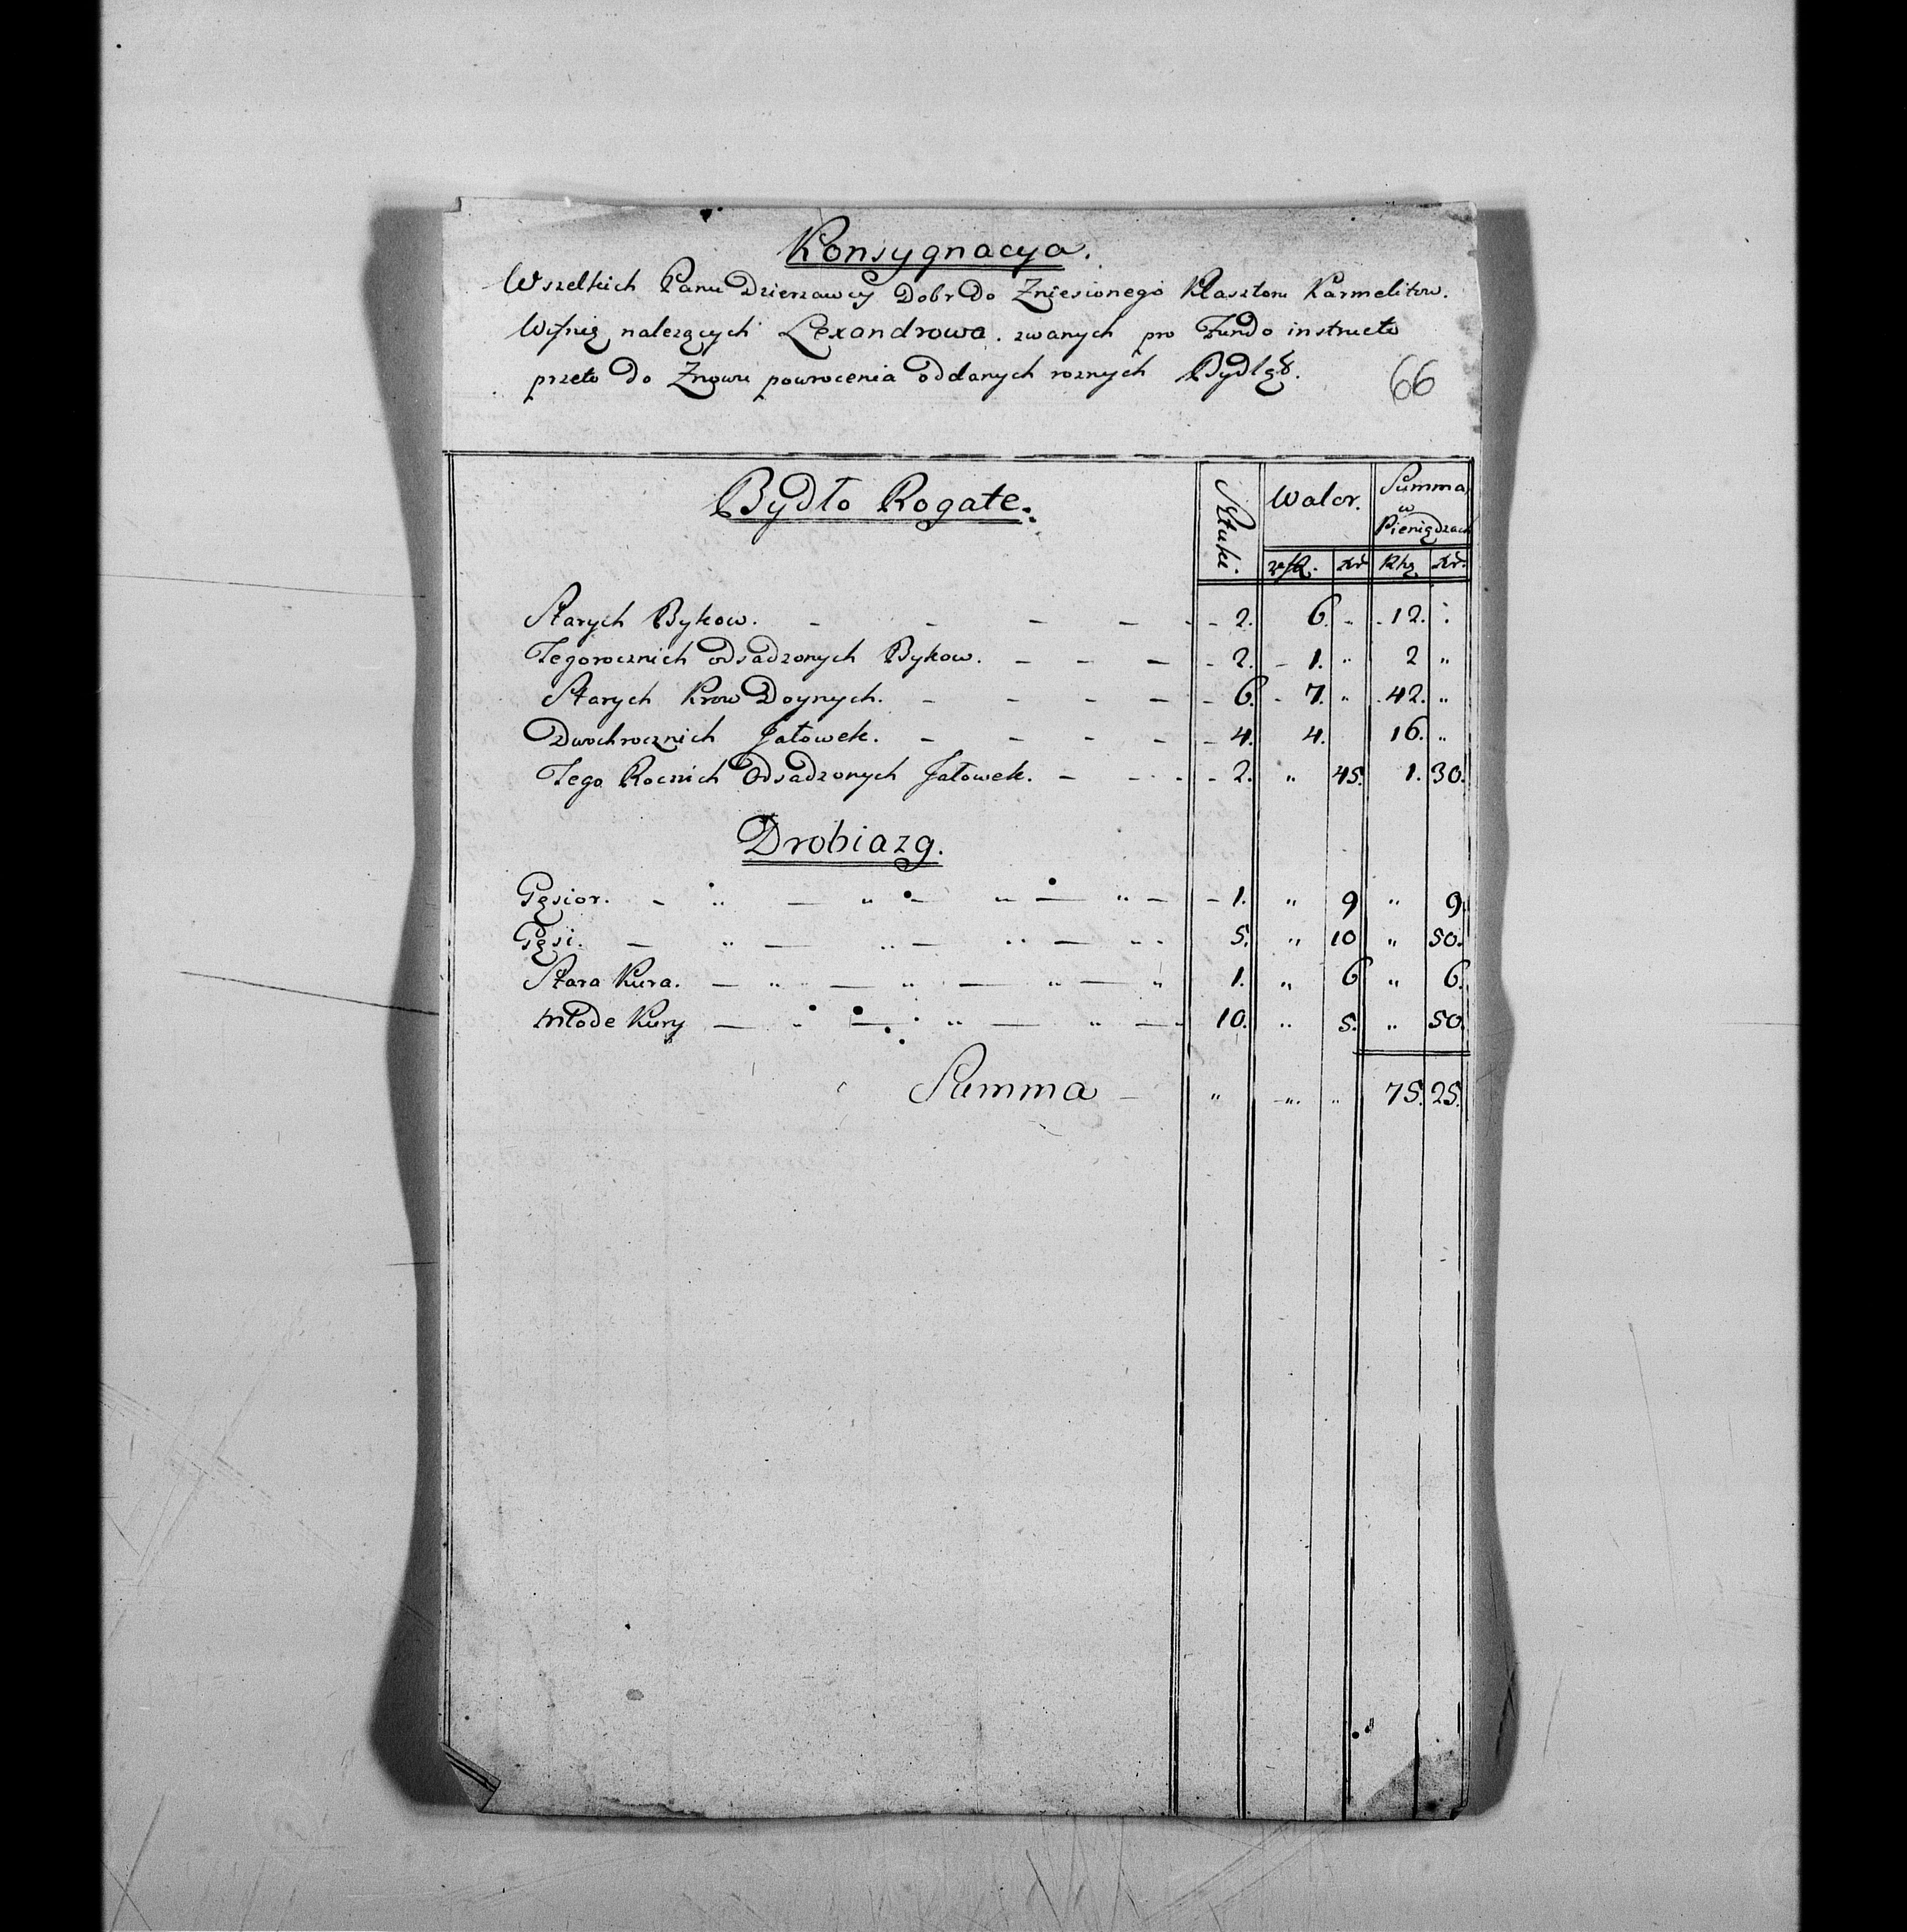 Konsygnacya.
Wszelkich Panu Dzierzawcy Dobr do Zniesionego Klasztoru Karmelitow.
nalezących Lexandrowa. zwanych pro Fundo instructo
przeto do Znowu powrocenia oddanych roznych
66
Bydło Rogate. Sztuki. Walor. Summa w Pieniądzach
Xr Rhs Xr.
Starych Bykow. - - - - - 2. 6. „ 12. „
Tegorocznich odsadzonych Bykow. - - - - 2. - 1. „ 2 „
Starych Krow Doynych. - - - - - 6. - 7. „ 42. „
Dwochrocznich Jałowek. - - - - - 4. 4. 16. „
Tego Rocznich Odsadzonych Jałowek. - - - - 2. „ 45. 1. 30.
Drobiazg.
Gęsior. - „ — „ — „ — „ — - 1. „ 9 „ 9.
Gęsi. — „ — „ — „ — „ 5. „ 10 „ 50.
Stara Kura. — „ — „ — „ — „ 1. „ 6 „ 6.
Młode Kury — „ — „ — „ — 10. „ 5. „ 50.
Summa — „ „ „ 75. 25.